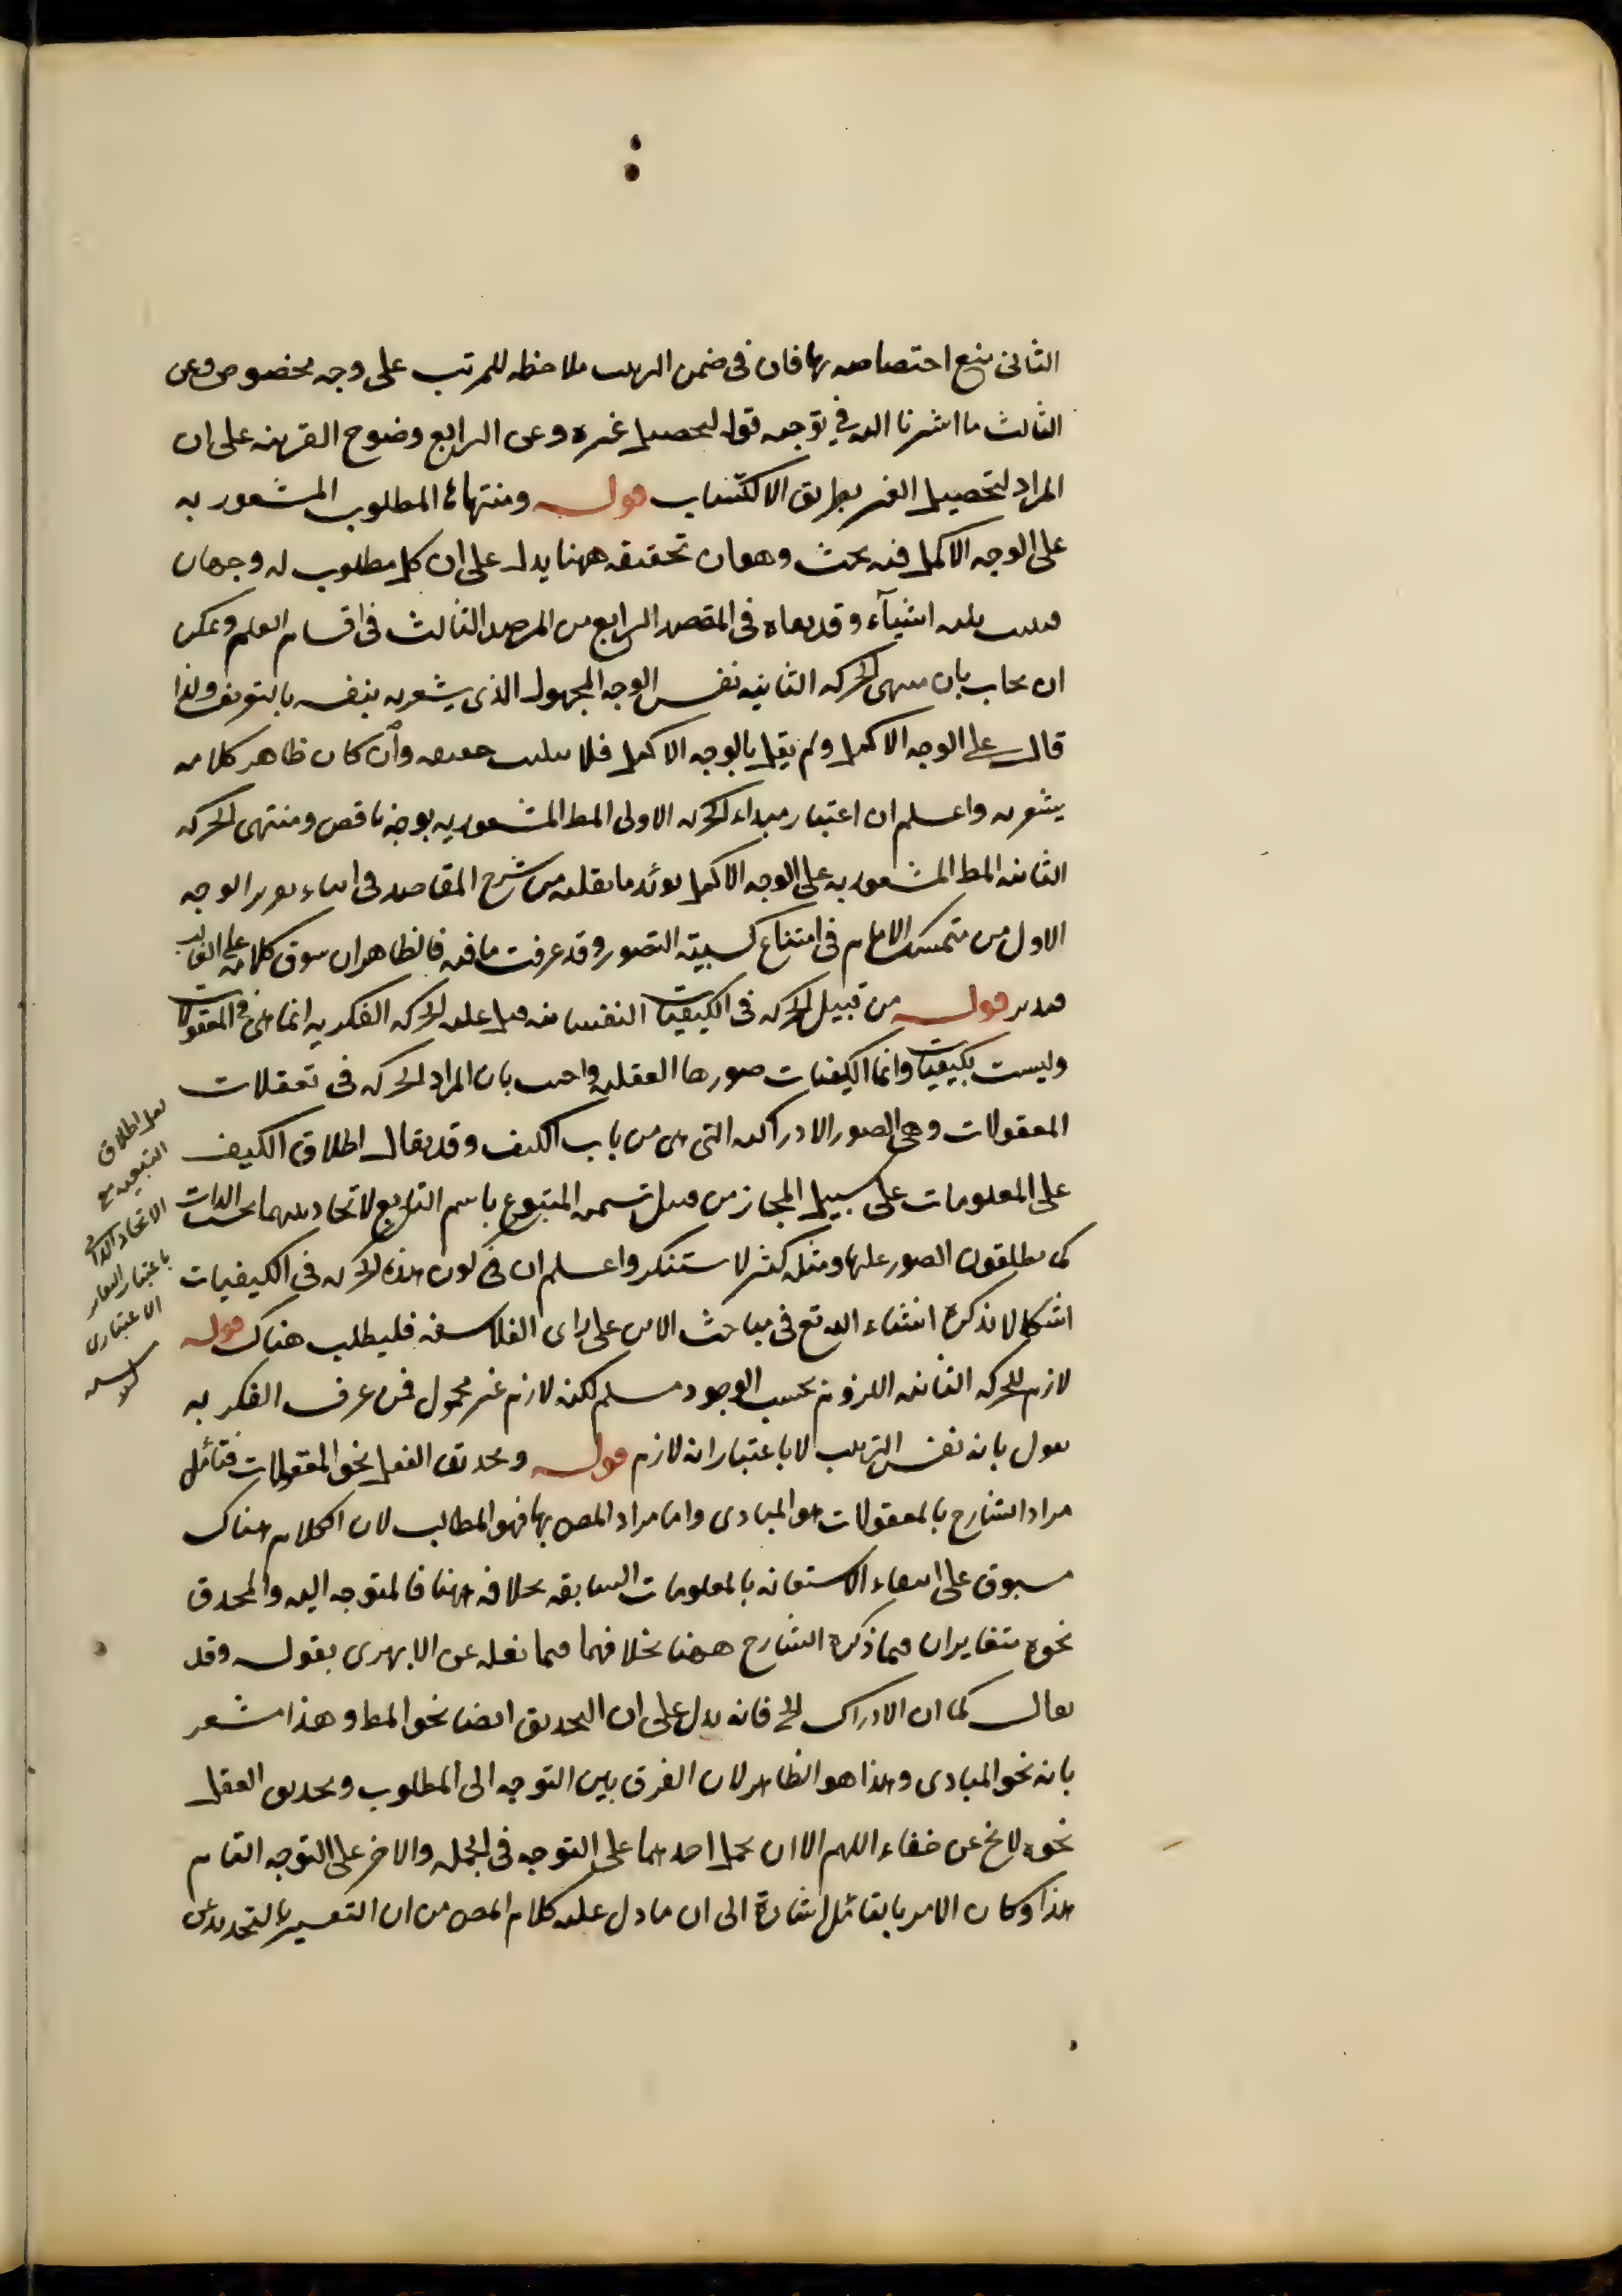 الثانى منع اختصاصه بها فان فى ضمن الترتيب ملاحظه للمرتب على وجه مخصوص وعن
الثالث ما اشرنا اليه فى توجيه قوله لتحصيل غيره وعن الرابع وضوح القرينه على ان
المراد لتحصيل الغير بطريق الاكتساب قوله ومنتهاها المطلوب المشعور به
على الوجه الاكمل فيه بحث وهو ان تحقيقه ههنا يدل على ان كل مطلوب له وجهان
فليست ثلثه اشيآء وقد نفاه فى المقصد الرابع من المرصد الثالث فى اقسام العلم ويمكن
ان يجاب بان منتهى الحركه الثانيه نفس الوجه المجهول الذى يشعر به بنفسه بالتعريف ولذا
قال على الوجه الاكمل ولم يقل بالوجه الاكمل فلا تثليث حقيقه وان كان ظاهر كلامه
يشعر به واعلم ان اعتبار مبداء الحركه الاولى المط المشعور به بوجه ناقص ومنتهى الحركه
الثانيه المط المشعور به على الوجه الاكمل يؤيد ما نقلته من شرح المقاصد فى اثناء تقرير الوجه
الاول من متمسك الامام فى امتناع كسبية التصور وقد عرفت ما فيه فالظاهر ان سوق كلامه على الغالب
فتدبر قوله من قبيل الحركه فى الكيفيات النفسانيه قيل عليه الحركه الفكريه انما هى فى المعقولات
وليست بكيفيات وانما الكيفيات صورها العقليه واجيب بان المراد الحركه فى تعقلات
المعقولات وهى الصور الادراكيه التى هى من باب الكيف وقد يقال اطلاق الكيف
على المعلومات على سبيل المجاز من قبيل تسميه المتبوع باسم التابع لاتحاد بينهما بحسب الذات
كما يطلقون الصور عليها ومثله كثير لا يستنكر واعلم ان فى كون هذه الحركه فى الكيفيات
اشكالا نذكره انشاء الله تع فى مباحث الاين على راى الفلاسفه فليطلب هناك قوله
لازم للحركه الثانيه اللزوم بحسب الوجود مسلم لكنه لازم غير محمول فمن عرف الفكر به
يقول بانه نفس الترتيب لا باعتبار انه لازم قوله وتحديق العقل نحو المعقولات فتأمل
مراد الشارح بالمعقولات هو المبادى واما مراد المص بها فهو المطالب لان الكلام هناك
مسوق على انتفاء الاستعانه بالمعلومات السابقه بخلافه ههنا فالمتوجه اليه والمحدق
نحوه متغايران فيما ذكره الشارح ههنا بخلافهما فيما نقله عن الابهرى بقوله وقد
يقال كما ان الادراك الخ فانه يدل على ان التحديق ايضا نحو المط وهذا مشعر
بانه نحو المبادى وهذا هو الظاهر لان الفرق بين التوجه الى المطلوب وتحديق العقل
نحوه لا يخ عن خفاء اللهم الا ان يحمل احدهما على التوجه فى الجمله والاخر على التوجه التام
هذا وكان الامر بالتأمل اشارة الى ان ما دل عليه كلام المص من ان التفسير بالتحديق
لعل اطلاق
التبعيه مع
الاتحاد الذاتى
باعتبار التغاير
الاعتبارى